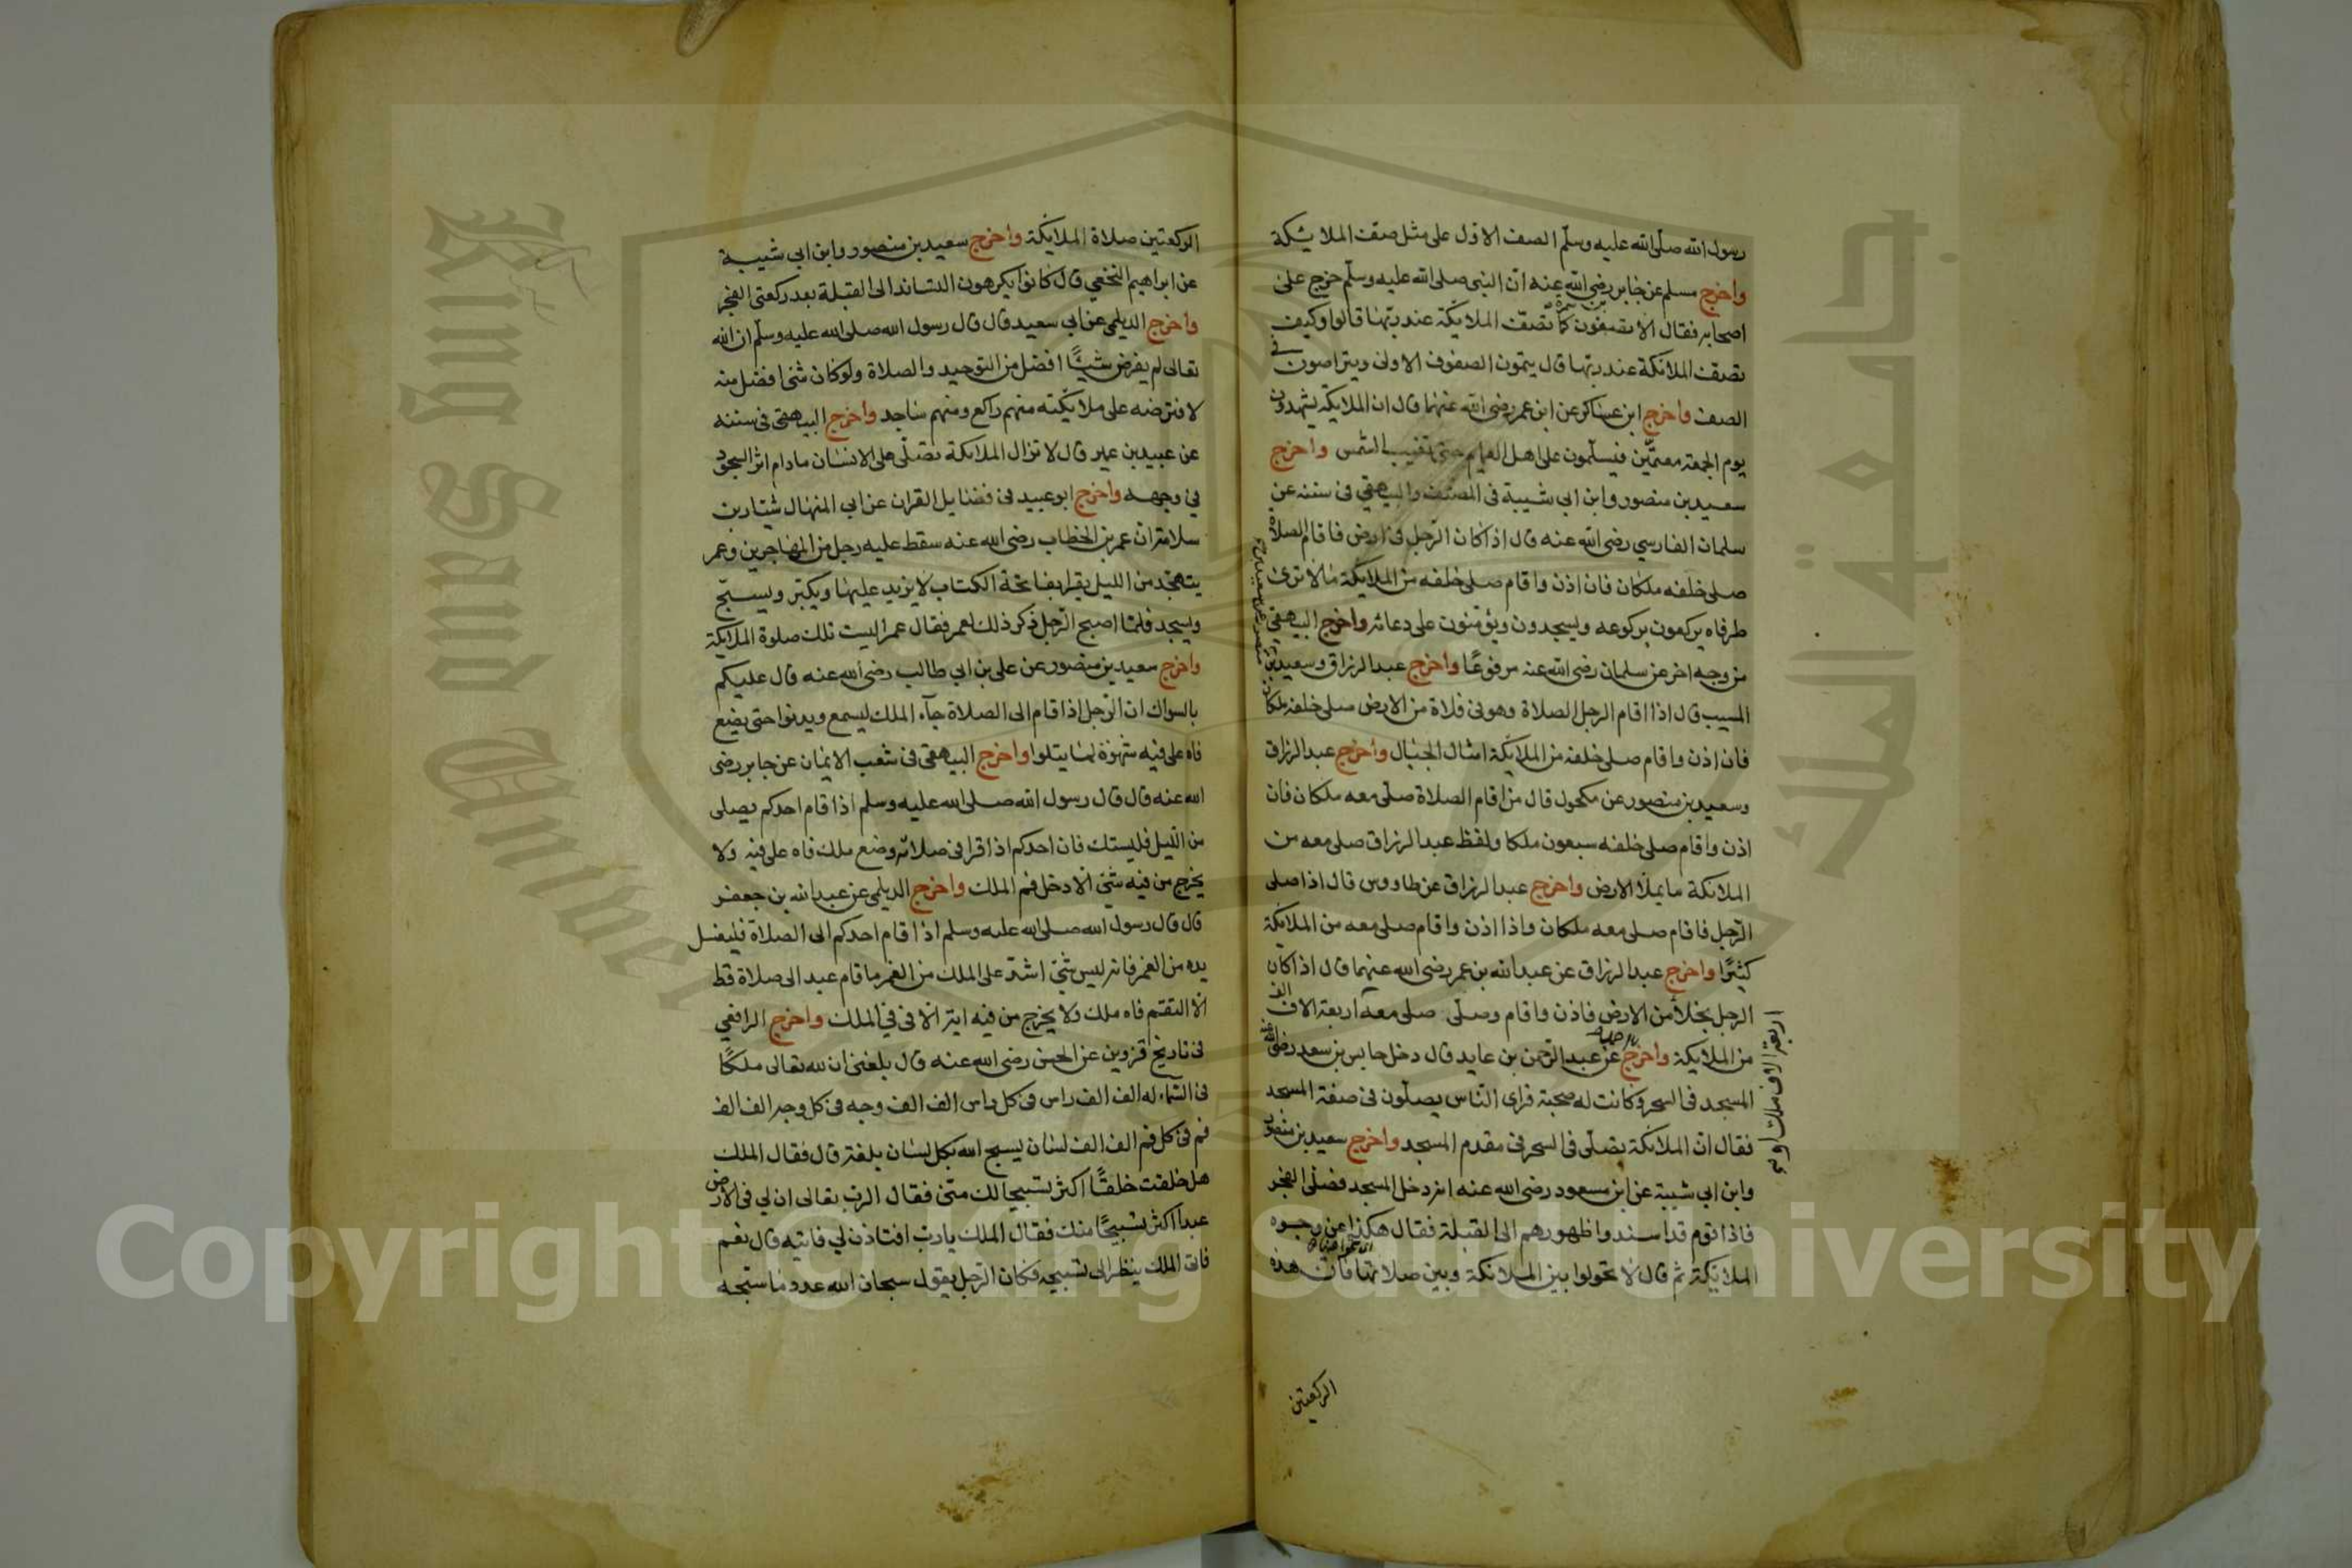 رسول الله صلى الله عليه وسلم الصف الاول على مثل صف الملائيكة
واخرج مسلم عن جابر رضي الله عنه ان النبي صلى الله عليه وسلم خرج على
اصحابه فقال الا تصفون كما تصف الملايكة عند ربها قالوا وكيف
تصف الملائكة عند ربها قال يتمون الصفوف الاولى ويتراصون في
الصف واخرج ابن عساكر عن ابن عمر رضي الله عنهما قال ان الملايكة يشهدون
يوم الجمعة معتمين فيسلمون على اهل العمايم حتى تغيب الشمس واخرج
سعيد بن منصور وابن ابي شيبة في المصنف والبيهقي في سننه عن
سلمان الفارسي رضي الله عنه قال اذا كان الرجل في ارض فاقام الصلاة
صلى خلفه ملكان فان اذن واقام صلى خلفه من الملايكة مالا ترى
طرفاه يركعون بركوعه ويسجدون ويؤمنون على دعائه واخرج البيهقي
من وجه اخر عن سلمان رضي الله عنه مرفوعا واخرج عبد الرزاق وسعيد بن
المسيب قال اذا اقام الرجل الصلاة وهو في فلاة من الارض صلى خلفه ملكان
فان اذن واقام صلى خلفه من الملايكة امثال الجبال واخرج عبد الرزاق
وسعيد بن منصور عن مكحول قال من اقام الصلاة صلى معه ملكان فان
اذن واقام صلى خلفه سبعون ملكا ولفظ عبد الرزاق صلى معه من
الملائكة ما يملأ الارض واخرج عبد الرزاق عن طاووس قال اذا صلى
الرجل فاقام صلى معه ملكان واذا اذن واقام صلى معه من الملايكة
كثيرا واخرج عبد الرزاق عن عبد الله بن عمر رضي الله عنهما قال اذا كان
الرجل بخلاء من الارض فاذن واقام وصلى صلى معه اربعة الاف الف
من الملايكة واخرج عن عبد الرحمن بن عايد قال دخل حابس بن سعد رضي الله عنه
المسجد في السحر وكانت له صحبة فراى الناس يصلون في صفة المسجد
فقال ان الملائكة تصلى في السحر في مقدم المسجد واخرج سعيد بن منصور
وابن ابي شيبة عن ابن مسعود رضي الله عنه انه دخل المسجد فصلى الفجر
فاذا قوم قد اسندوا ظهورهم الى القبلة فقال هكذا عن وجوه
الملائيكة ثم قال لا تحولوا بين الملائكة وبين صلاتها فان هذه
اربعة الاف ملك او
الركعتين
الركعتين صلاة الملايكة واخرج سعيد بن منصور وابن ابي شيبة
عن ابراهيم النخعي قال كانوا يكرهون التساند الى القبلة بعد ركعتي الفجر
واخرج الديلمي عن ابي سعيد قال قال رسول الله صلى الله عليه وسلم ان الله
تعالى لم يفرض شيئا افضل من التوحيد والصلاة ولو كان شئ افضل منه
لافترضه على ملايكته منهم راكع ومنهم ساجد واخرج البيهقي في سننه
عن عبيد بن عمير قال لا تزال الملائكة تصلى على الانسان مادام اثر السجود
في وجهه واخرج ابو عبيد في فضايل القران عن ابي المنهال سيار بن
سلامة ان عمر بن الخطاب رضي الله عنه سقط عليه رجل من المهاجرين وعمر
يتهجد من الليل يقرا بفاتحة الكتاب لا يزيد عليها ويكبر ويسبح
ويسجد فلما اصبح الرجل ذكر ذلك لعمر فقال عمر اليست تلك صلوة الملايكة
واخرج سعيد بن منصور عن على بن ابي طالب رضي الله عنه قال عليكم
بالسواك ان الرجل اذا قام الى الصلاة جآء الملك ليسمع ويدنوا حتى يضع
فاه على فيه شهوة لما يتلوا واخرج البيهقي في شعب الايمان عن جابر رضي
الله عنه قال قال رسول الله صلى الله عليه وسلم اذا قام احدكم يصلى
من الليل فليستك فان احدكم اذا قرا في صلاته وضع ملك فاه على فيه ولا
يخرج من فيه شئ الا دخل فم الملك واخرج الديلمي عن عبد الله بن جعفر
قال قال رسول الله صلى الله عليه وسلم اذا قام احدكم الى الصلاة فليغسل
يده من الغمر فانه ليس شئ اشد على الملك من الغمر ما قام عبد الى صلاة قط
الا التقم فاه ملك ولا يخرج من فيه اية الا في في الملك واخرج الرافعي
في تاريخ قزوين عن الحسن رضي الله عنه قال بلغني ان لله تعالى ملكا
في السماء له الف الف راس في كل راس الف الف وجه في كل وجه الف الف
فم في كل فم الف الف لسان يسبح الله بكل لسان بلغة قال فقال الملك
هل خلقت خلقا اكثر تسبيحا لك منى فقال الرب تعالى ان لي في الارض
عبدا اكثر تسبيحا منك فقال الملك يا رب افتاذن لي فاتيه قال نعم
فاتى الملك ينظر الى تسبيحه فكان الرجل يقول سبحان الله عدد ما سبحه
جامعة الملك
King Saud Univer
Copyright © King Saud University